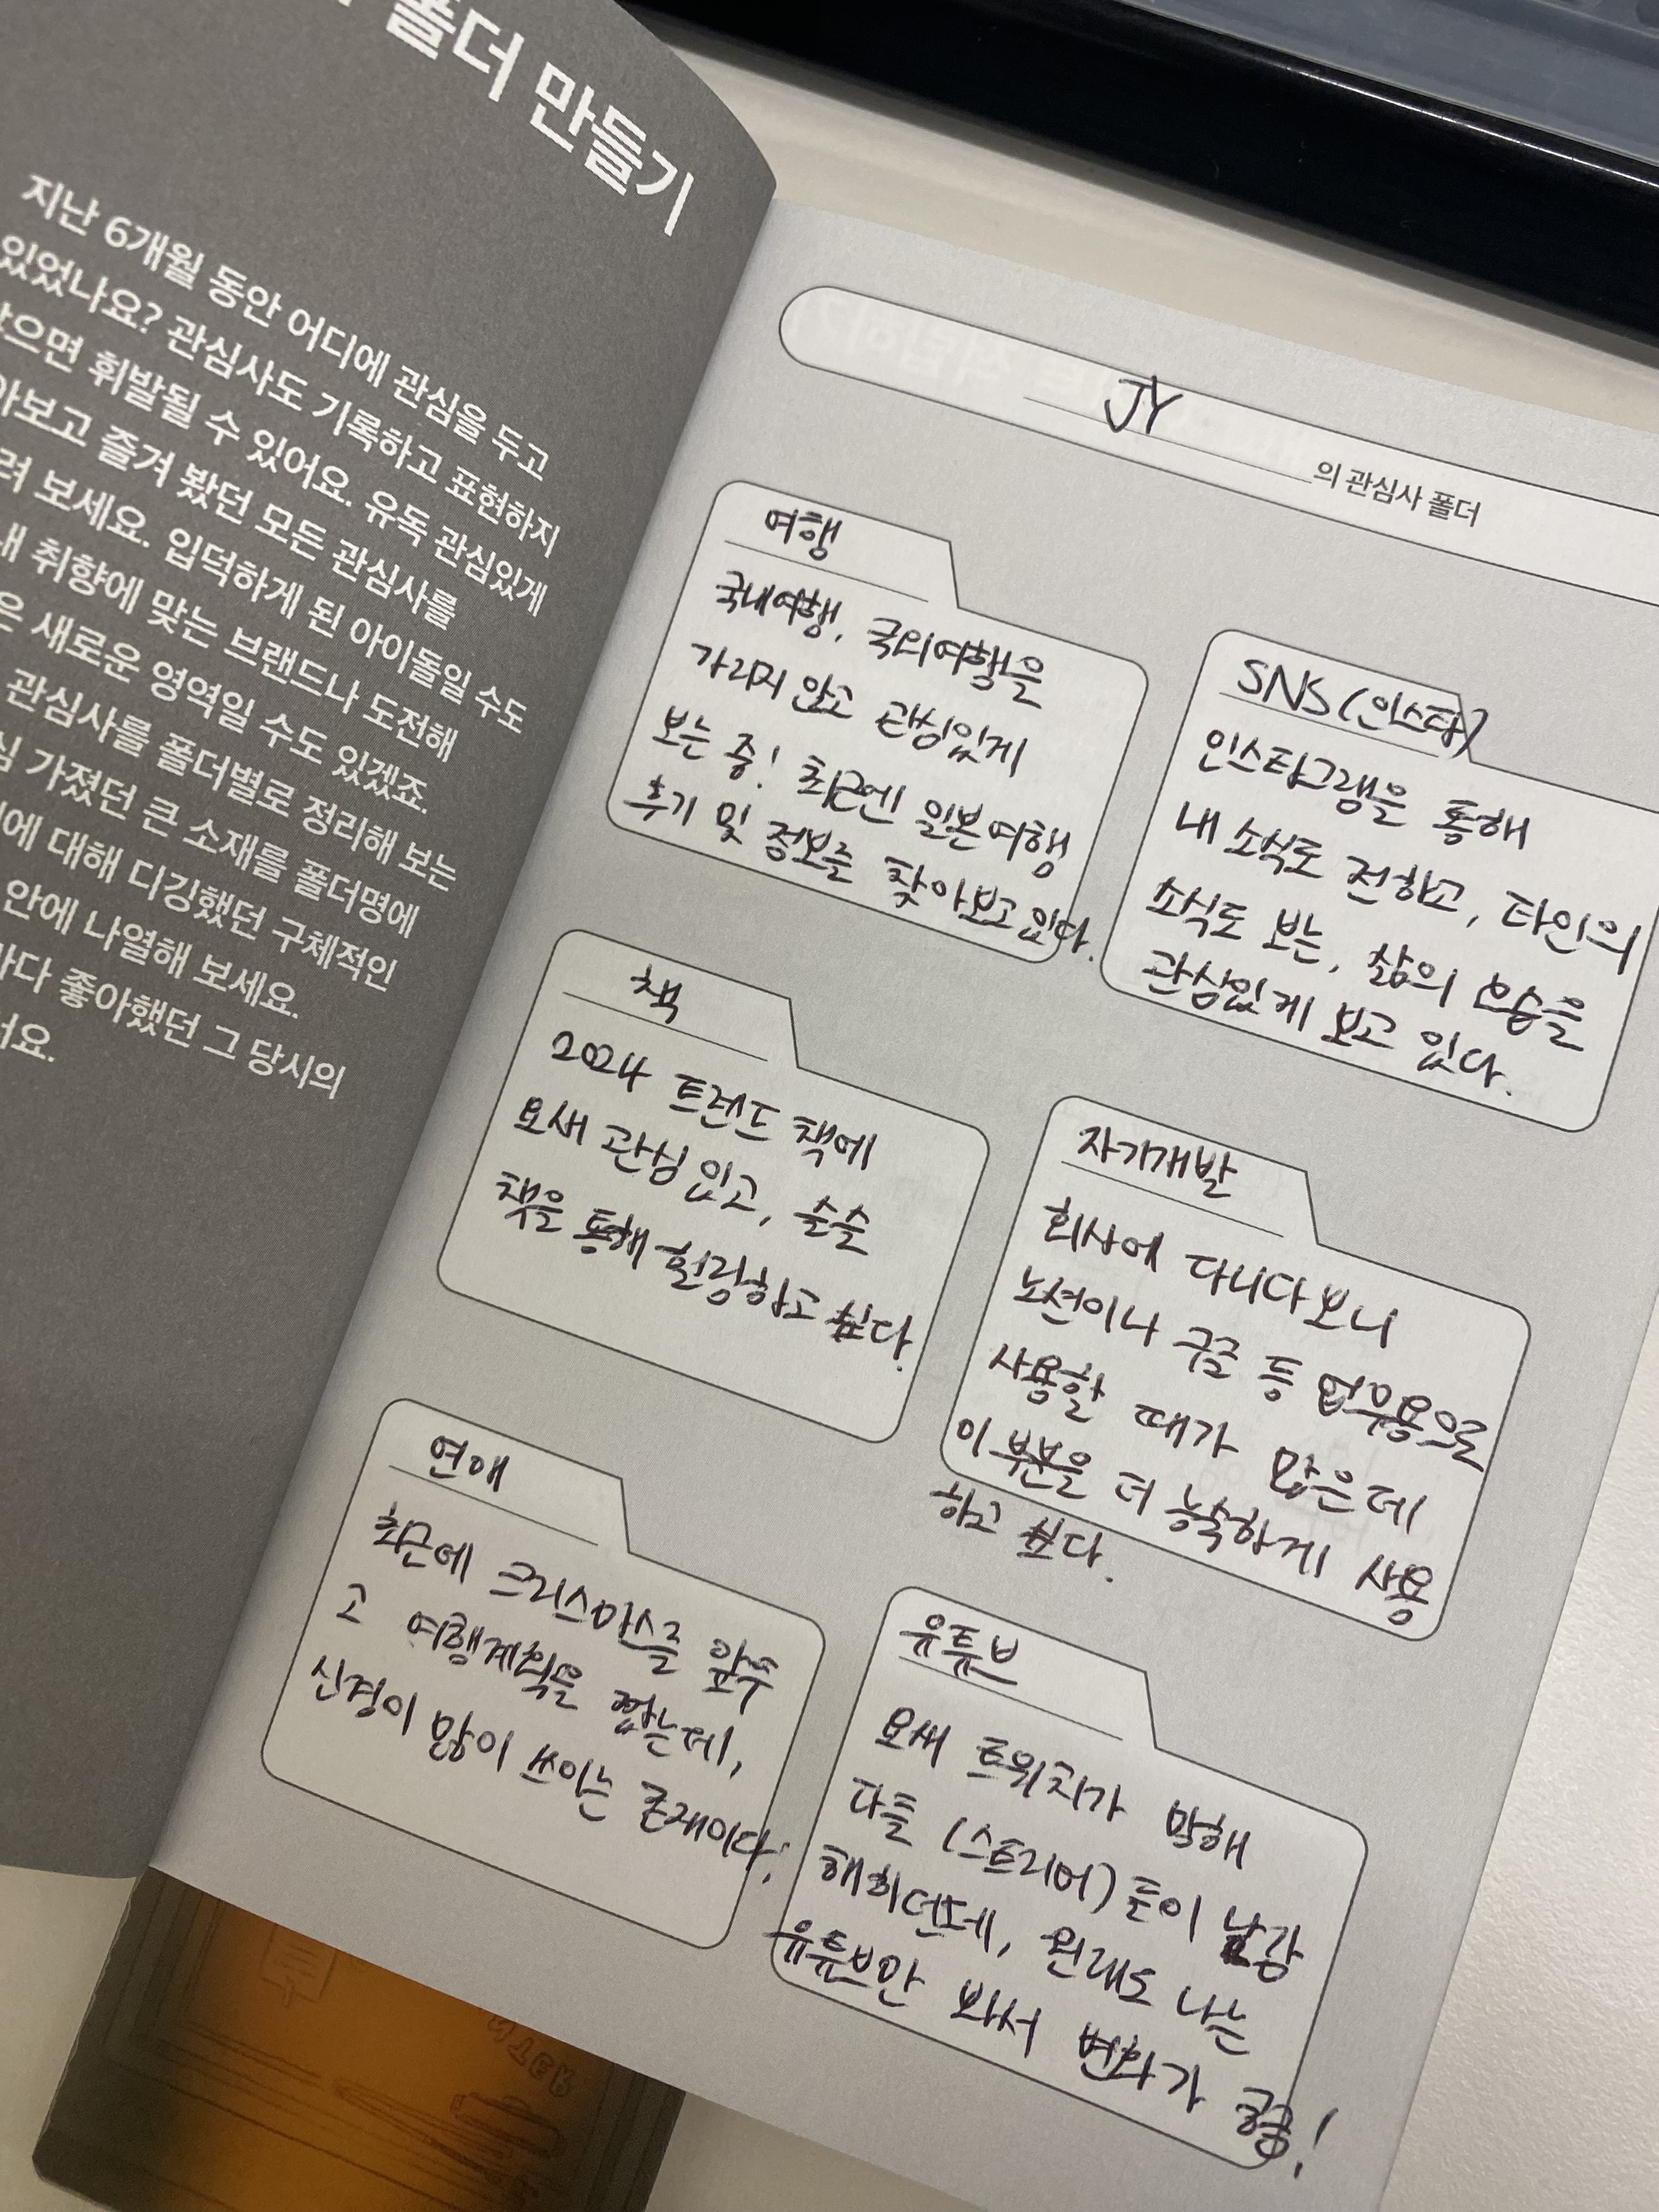 폴더 만들기
지난 6개월 동안 어디에 관심을 두고
있었나요? 관심사도 기록하고 표현하지
않으면 휘발될 수 있어요. 유독 관심있게
보고 즐겨 봤던 모든 관심사를
보세요. 입덕하게 된 아이돌일 수도
취향에 맞는 브랜드나 도전해
새로운 영역일 수도 있겠죠.
관심사를 폴더별로 정리해 보는
가졌던 큰 소재를 폴더명에
대해 디깅했던 구체적인
안에 나열해 보세요.
좋아했던 그 당시의
JY의 관심사 폴더
여행
국내여행, 국외여행을
가리지 않고 관심있게
보는 중! 최근엔 일본여행
후기 및 정보를 찾아보고 있다.
SNS(인스타)
인스타그램을 통해
내 소식도 전하고, 타인의
소식도 보는, 삶의 모습을
관심있게 보고 있다.
책
2024 트렌드 책에
요새 관심 있고, 슬슬
책을 통해 힐링하고 싶다.
자기개발
회사에 다니다보니
노션이나 구글 등 업무용으로
사용할 때가 많은데
이 부분을 더 능숙하게 사용
하고 싶다.
연애
최근에 크리스마스를 앞두
고 여행계획을 짰는데,
신경이 많이 쓰이는 존재이다;
유튜브
요새 트위치가 망해
다들 (스트리머)들이 난감
해하던데, 원래도 나는
유튜브만 봐서 변화가 궁금!